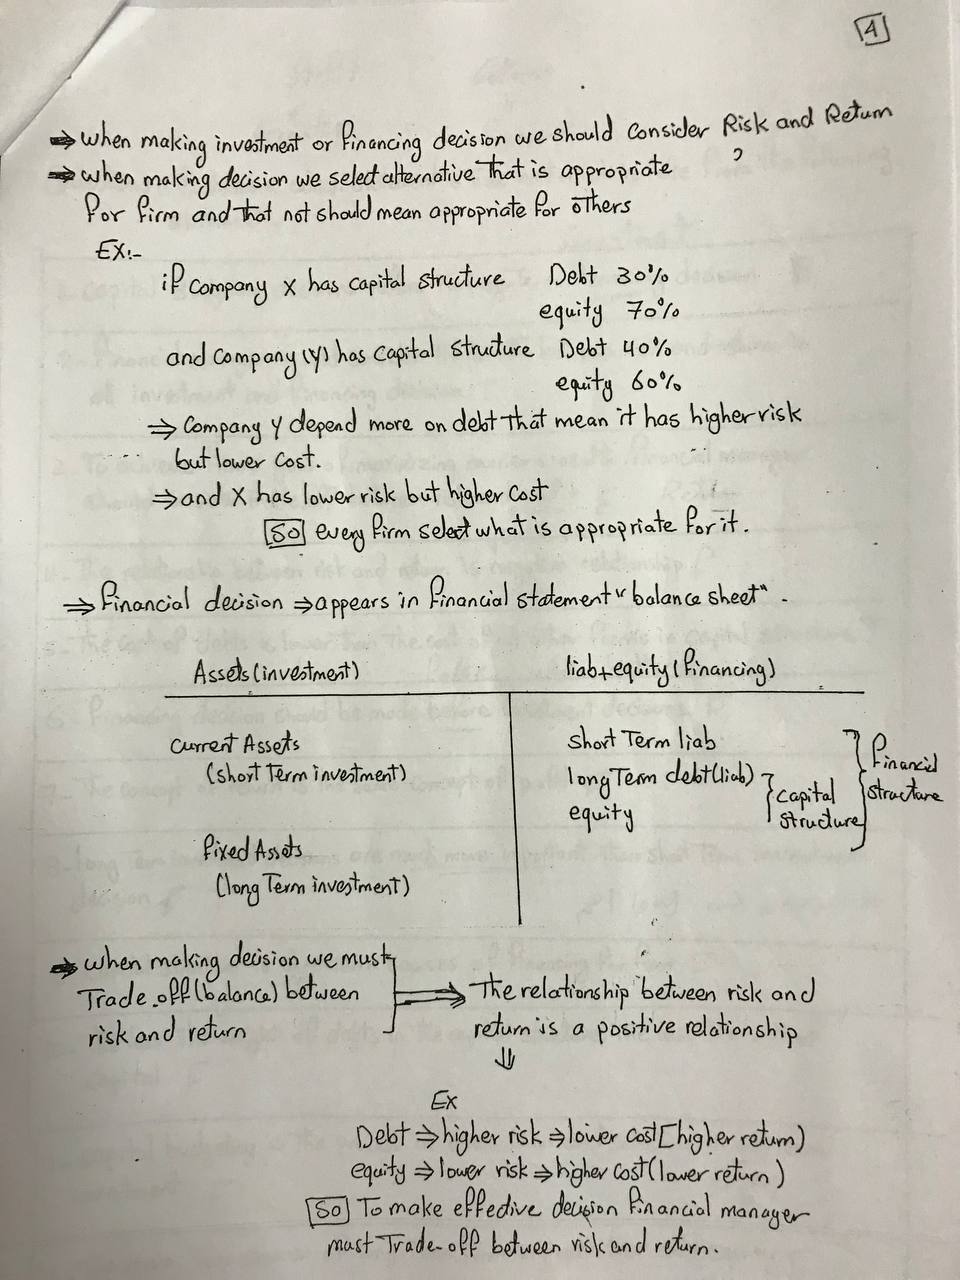 4
⇒ when making investment or financing decision we should consider Risk and Return
⇒ when making decision we select alternative that is appropriate
for firm and that not should mean appropriate for others
EX:-
if company X has capital structure Debt 30%
equity 70%
and company (Y) has capital structure Debt 40%
equity 60%
⇒ company Y depend more on debt that mean it has higher risk
but lower cost.
⇒ and X has lower risk but higher cost
So every firm select what is appropriate for it.
⇒ financial decision ⇒ appears in financial statement "balance sheet".
Assets (investment) liab+equity (financing)
current Assets
(short Term investment)
fixed Assets
(long Term investment)
short Term liab
long Term debt (liab)
equity
capital
structure
financial
structure
⇒ when making decision we must
Trade-off (balance) between
risk and return
⇒ The relationship between risk and
return is a positive relationship
⇓
Ex
Debt ⇒ higher risk ⇒ lower cost [higher return)
equity ⇒ lower risk ⇒ higher cost (lower return)
So To make effective decision financial manager
must Trade-off between risk and return.